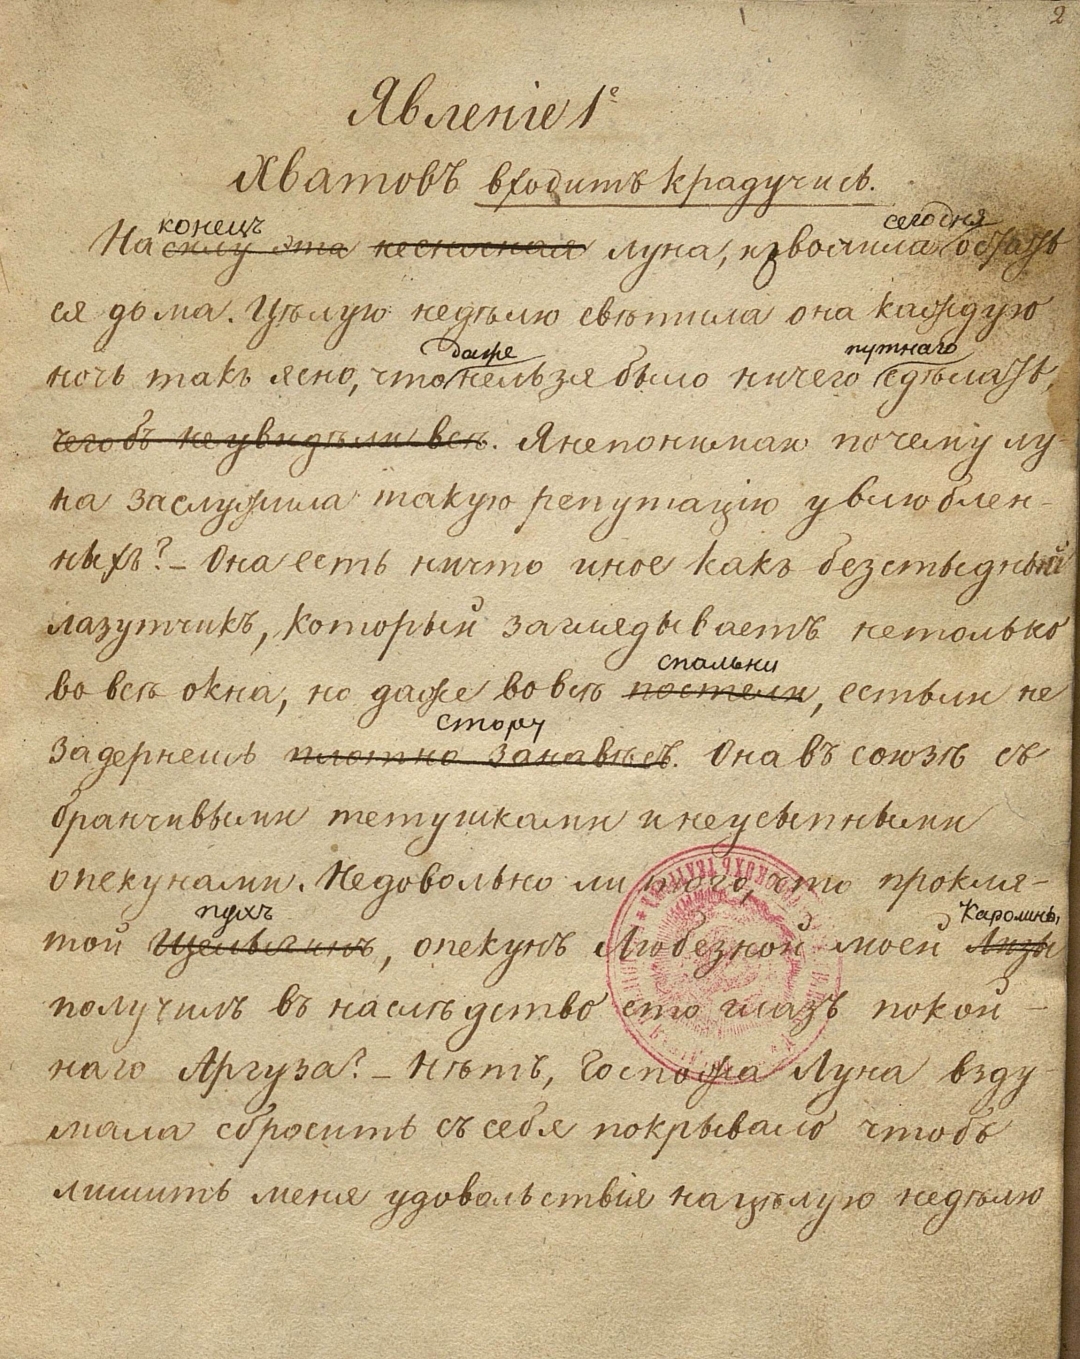 2
Явленіе 1е
Хватовъ входитъ крадучись.
конецъ сегодня
На силу эта несносная луна, изволила остать
ся дома. Цѣлую недѣлю свѣтила она каждую
даже путнаго
ночь такъ ясно, что нельзя было ничего сдѣлать,
чегобъ не увидѣли всѣ. Я непонимаю почему лу-
на заслужила такую репутацію у влюблен-
ныхъ? – Она есть ничто иное какъ безстыдный
лазутчикъ, который заглядываетъ нетолько
спальни
во всѣ окна, но даже во всѣ постели, естьли не
стору
задернешь плотно занавѣсъ. Она въ союзѣ съ
бранчивыми тетушками и неусыпными
опекунами. Недовольно ли того, что прокля-
пухъ Каролины,
той, опекунъ Любезной моей Лизы
получилъ въ наслѣдство сто глазъ покой-
наго Аргуза? – Нѣтъ, Госпожа Луна взду-
мала сбросить съ себя покрывало чтобъ
лишить меня удовольствія на цѣлую недѣлю